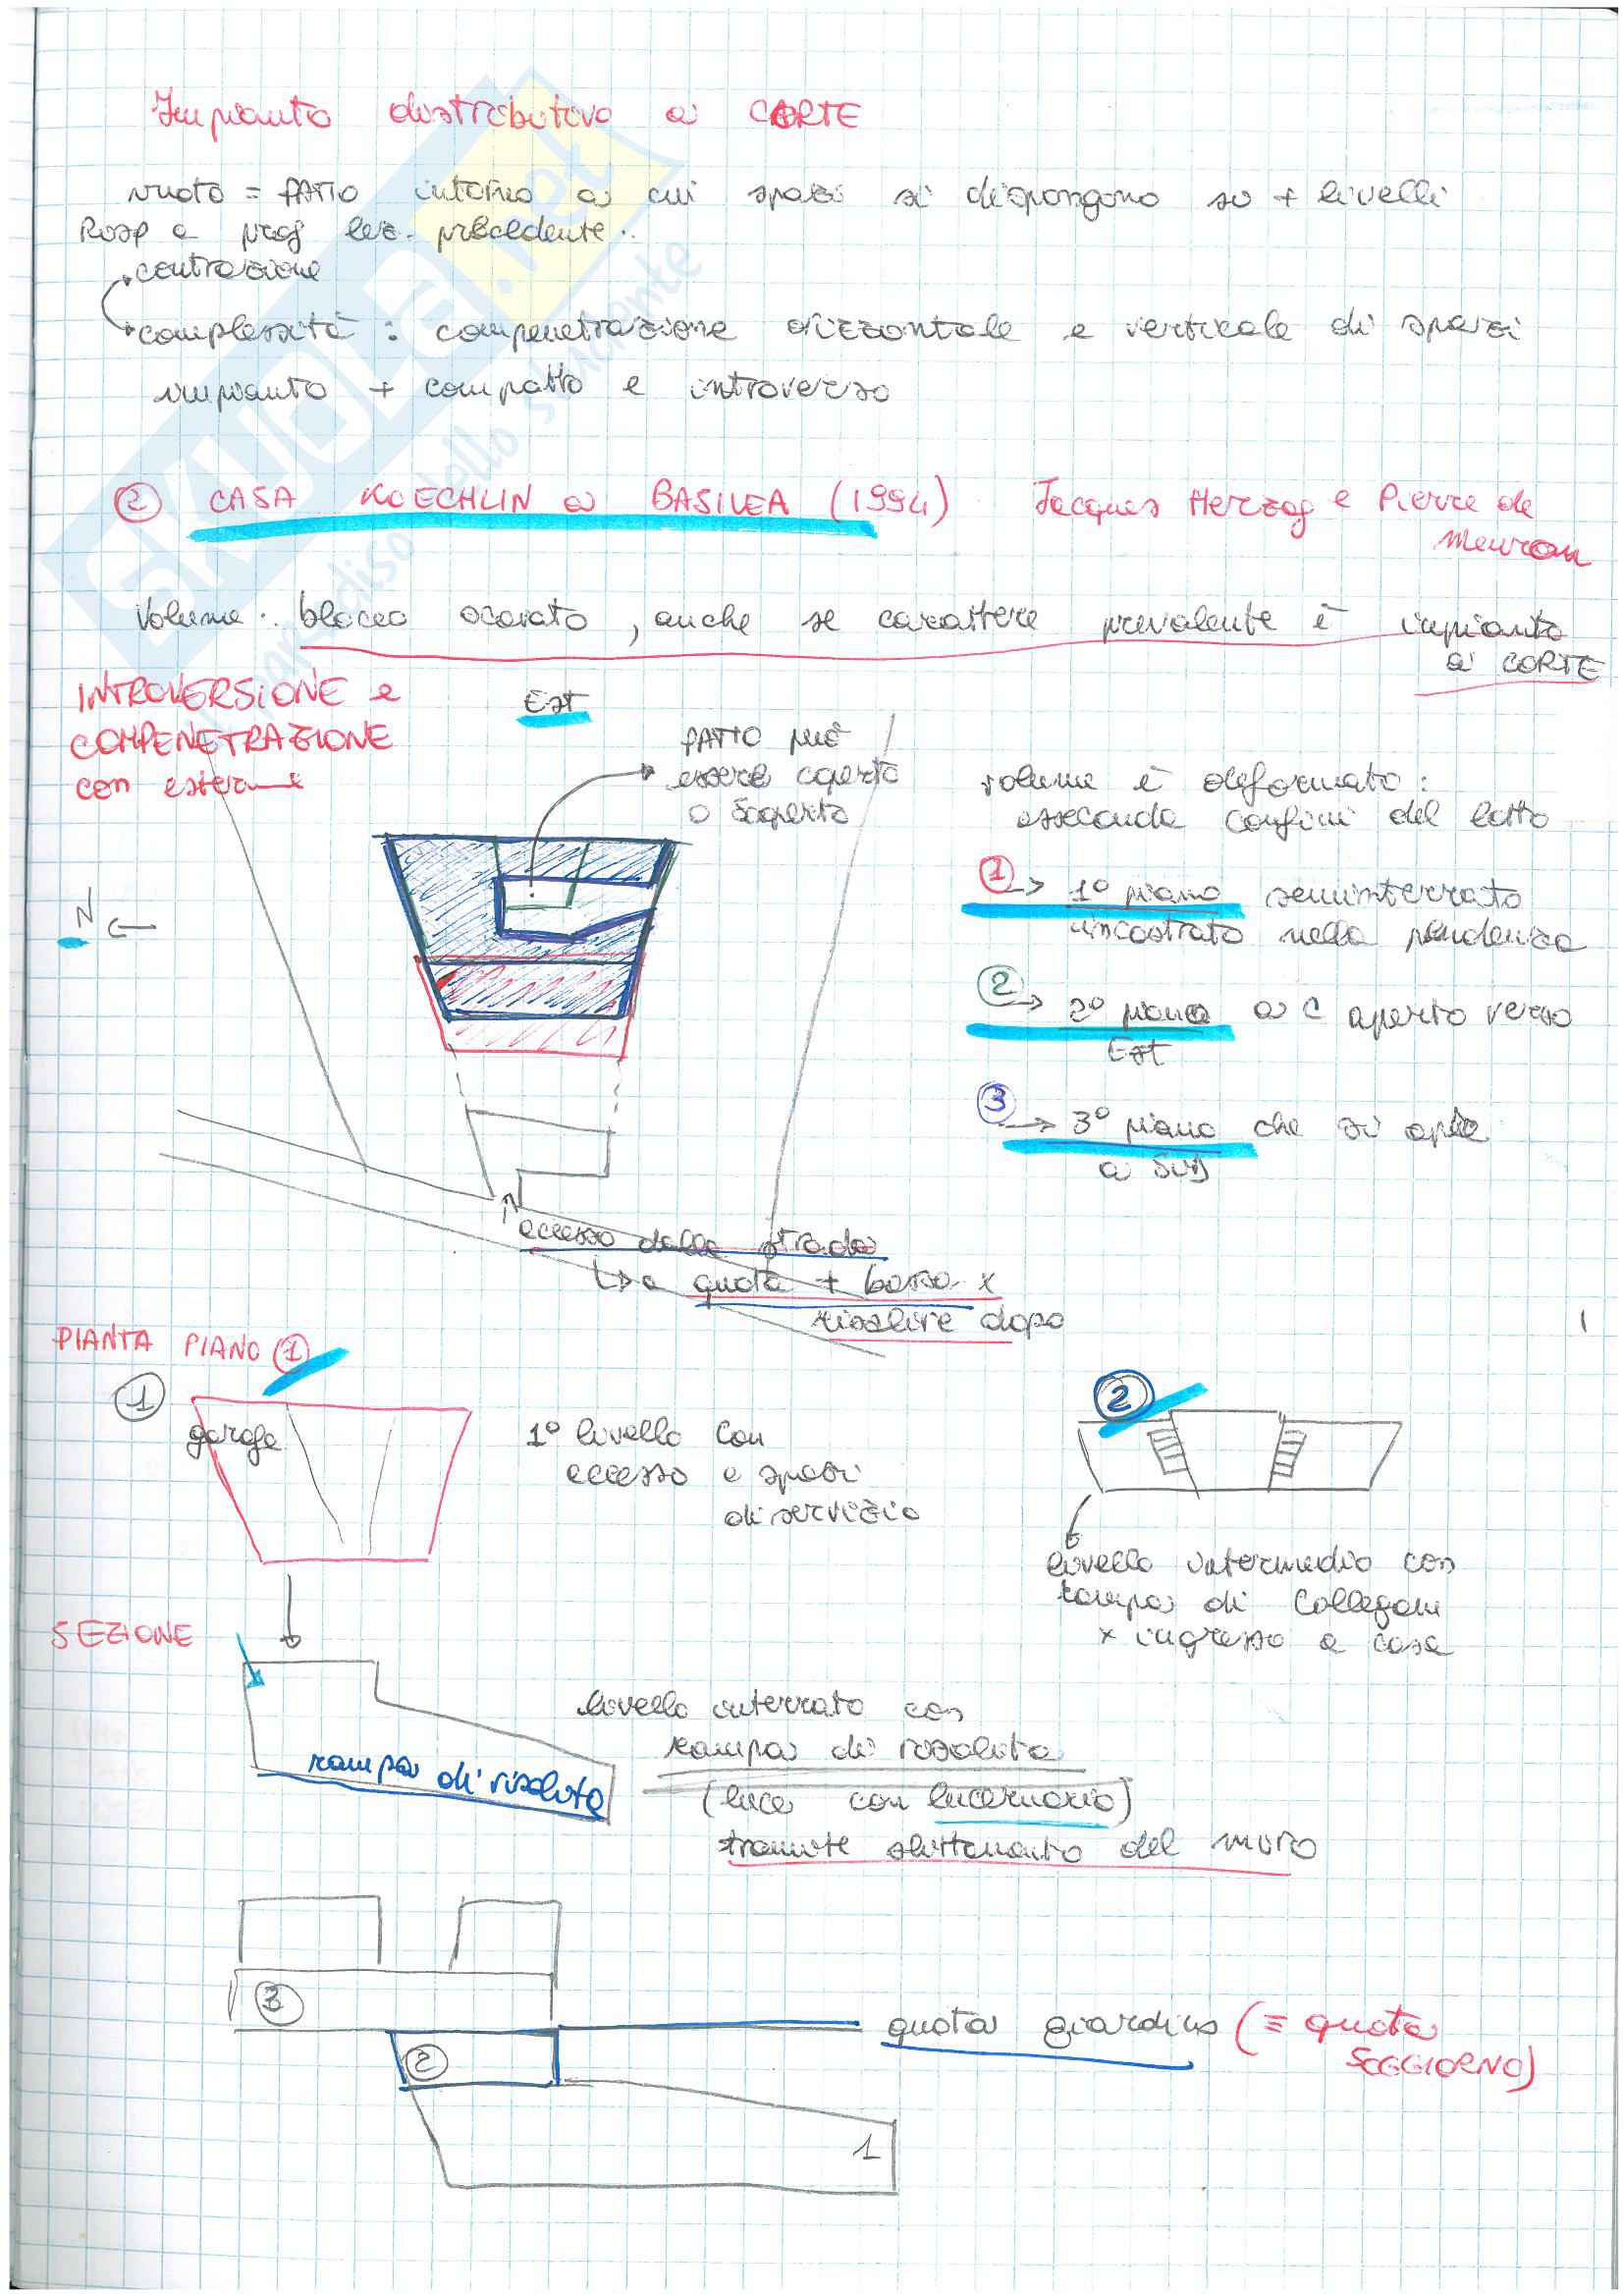 Impianto distributivo a CORTE
vuoto = PATIO intorno a cui spazi si dispongono su + livelli
Risp a prog lez. precedente:
contrazione
complessità : compenetrazione orizzontale e verticale di spazi
impianto + compatto e introverso
② CASA KOECHLIN a BASILEA (1994) Jacques Herzog e Pierre de
Meuron
Volume: blocco scavato, anche se carattere prevalente è impianto
a CORTE
INTROVERSIONE e
COMPENETRAZIONE
con esterno
Est
PATIO può
essere coperto
o scoperto
volume è deformato:
asseconda confini del lotto
N
① → 1° piano seminterrato
incastrato nella pendenza
② → 2° piano a C aperto verso
Est
③ → 3° piano che si apre
a SUD
accesso dalla strada
↳ a quota + bassa x
risalire dopo
PIANTA PIANO ①
①
garage
1° livello con
accesso e spazi
di servizio
②
livello intermedio con
rampa di collegam
x ingresso a casa
SEZIONE
rampa di risalita
livello interrato con
rampa di risalita
(luce con lucernario)
tramite slittamento del muro
③
②
1
quota giardino (≡ quota
SOGGIORNO)
skuola.net
paradiso dello studente